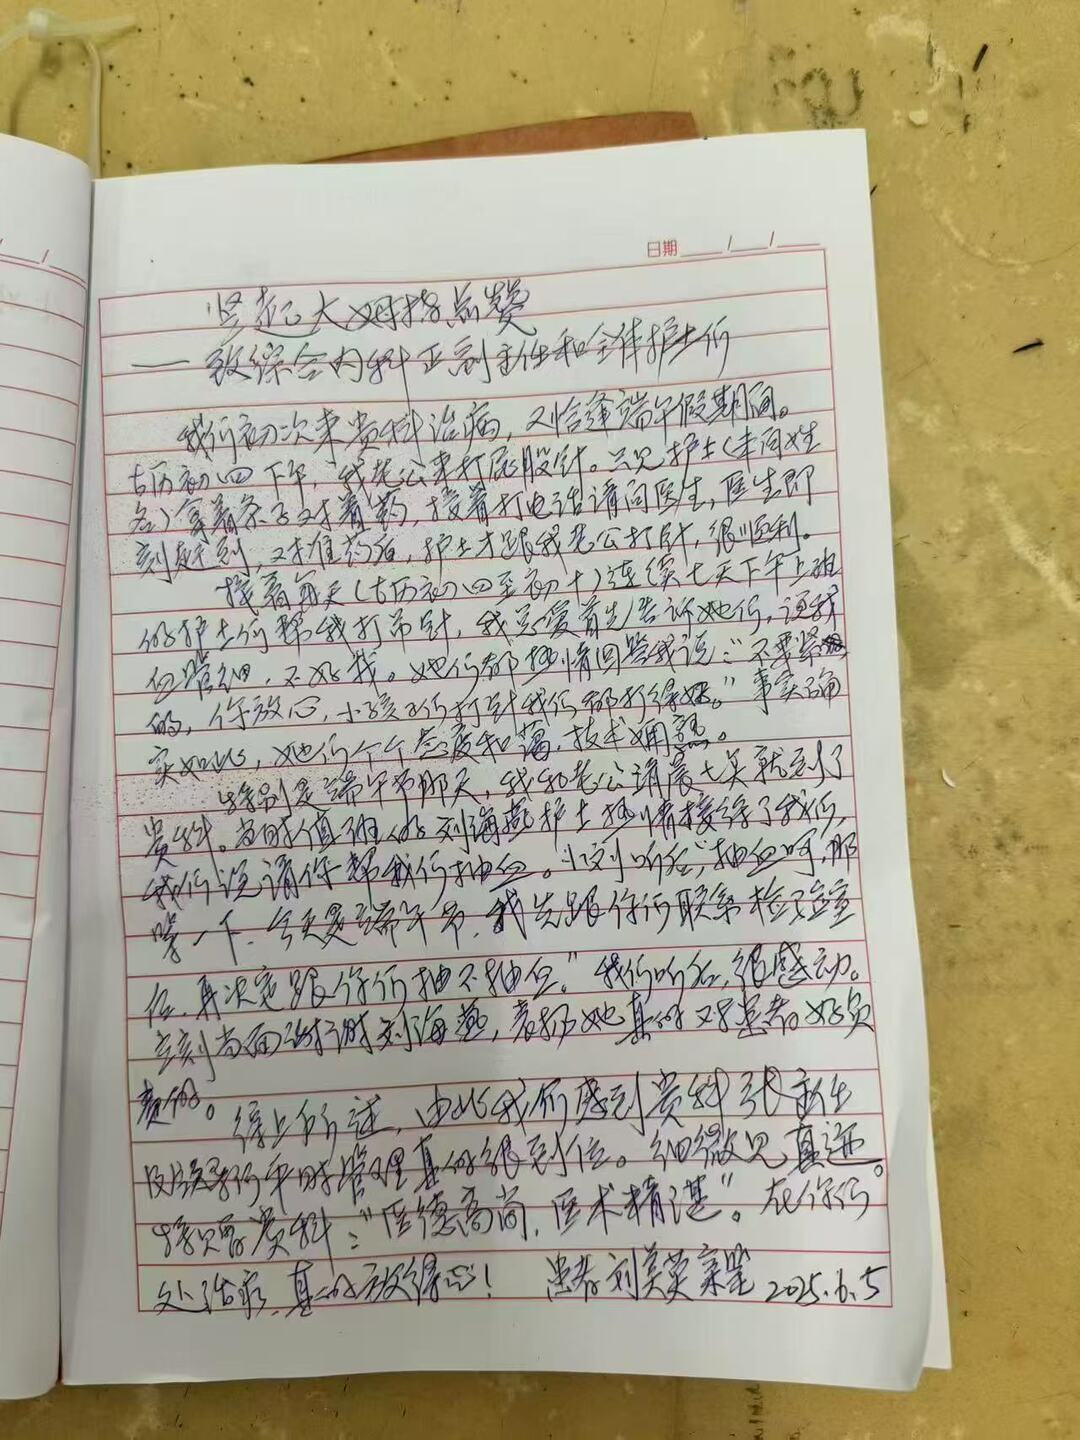 日期 / /
竖起大姆指点赞
——致综合内科正副主任和全体护士们
我们初次来贵科治病，又恰逢端午假期间。
古历初四下午，我老公来打屁股针。只见护士（未问姓
名）拿着条子对着药，接着打电话请问医生，医生即
刻赶到，对准药后，护士才跟我老公打针，很顺利。
接着每天（古历初四至初十）连续七天下午上班
的护士们帮我打吊针，我总爱首先告诉她们，说我
血管细，不好找。她们都热情回答我说："不要紧
的，你放心，小孩子们打针我们都打得好。"事实确
实如此，她们个个态度和蔼，技术娴熟。
特别是端午节那天，我和老公清晨七点就到了
贵科。当时值班的刘海燕护士热情接待了我们，
我们说请你帮我们抽血。小刘听后，"抽血呵，那
等一下，今天是端午节，我先跟你们联系检验室
后，再决定跟你们抽不抽血。"我们听后，很感动。
立刻当面谢谢刘海燕，表扬她真的对患者好负
责的。
综上所述，由此我们感到贵科张主任
及领导们平时管理真的很到位。细微见真迹。
特赐贵科："医德高尚，医术精湛"。在你们
处治病，真的放得心！ 患者刘美英亲笔 2025.6.5